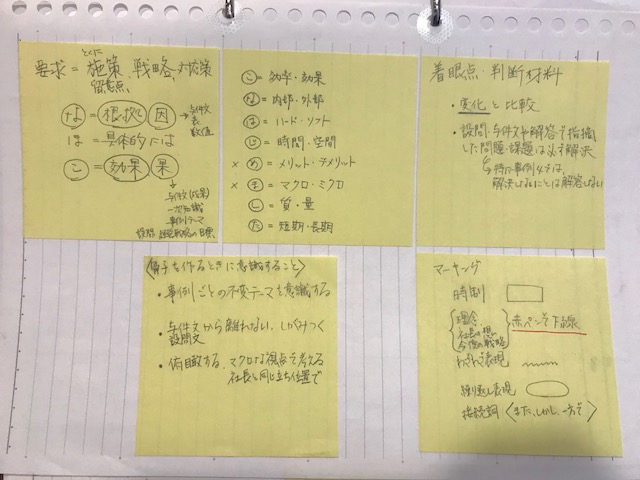 とくに
要求 = 施策、戦略、対応策
留意点
な = 根拠 因 → 与件文
表
数値
は = 具体的には
こ = 効果 果
与件文(成果)
一次知識
事例テーマ
設問
こ = 効率・効果
な = 内部・外部
は = ハード・ソフト
じ = 時間・空間
× め = メリット・デメリット
× ま = マクロ・ミクロ
し = 質・量
た = 短期・長期
着眼点・判断材料
・変化と比較
・設問、与件文や解答で指摘
した問題・課題は必ず解決
↳特に事例Ⅳでは、
解決しないことは解答しない
〈骨子を作るときに意識すること〉
・事例ごとの不変テーマを意識する
・与件文から離れない、しがみつく
設問文
・俯瞰する、マクロな視点で考える
社長と同じ立ち位置で
マーキング
時制
理念
社長の想い
今後の戦略
赤ペンで下線
わざわざ表現
繰り返し表現
接続詞 〈また、しかし、一方で〉